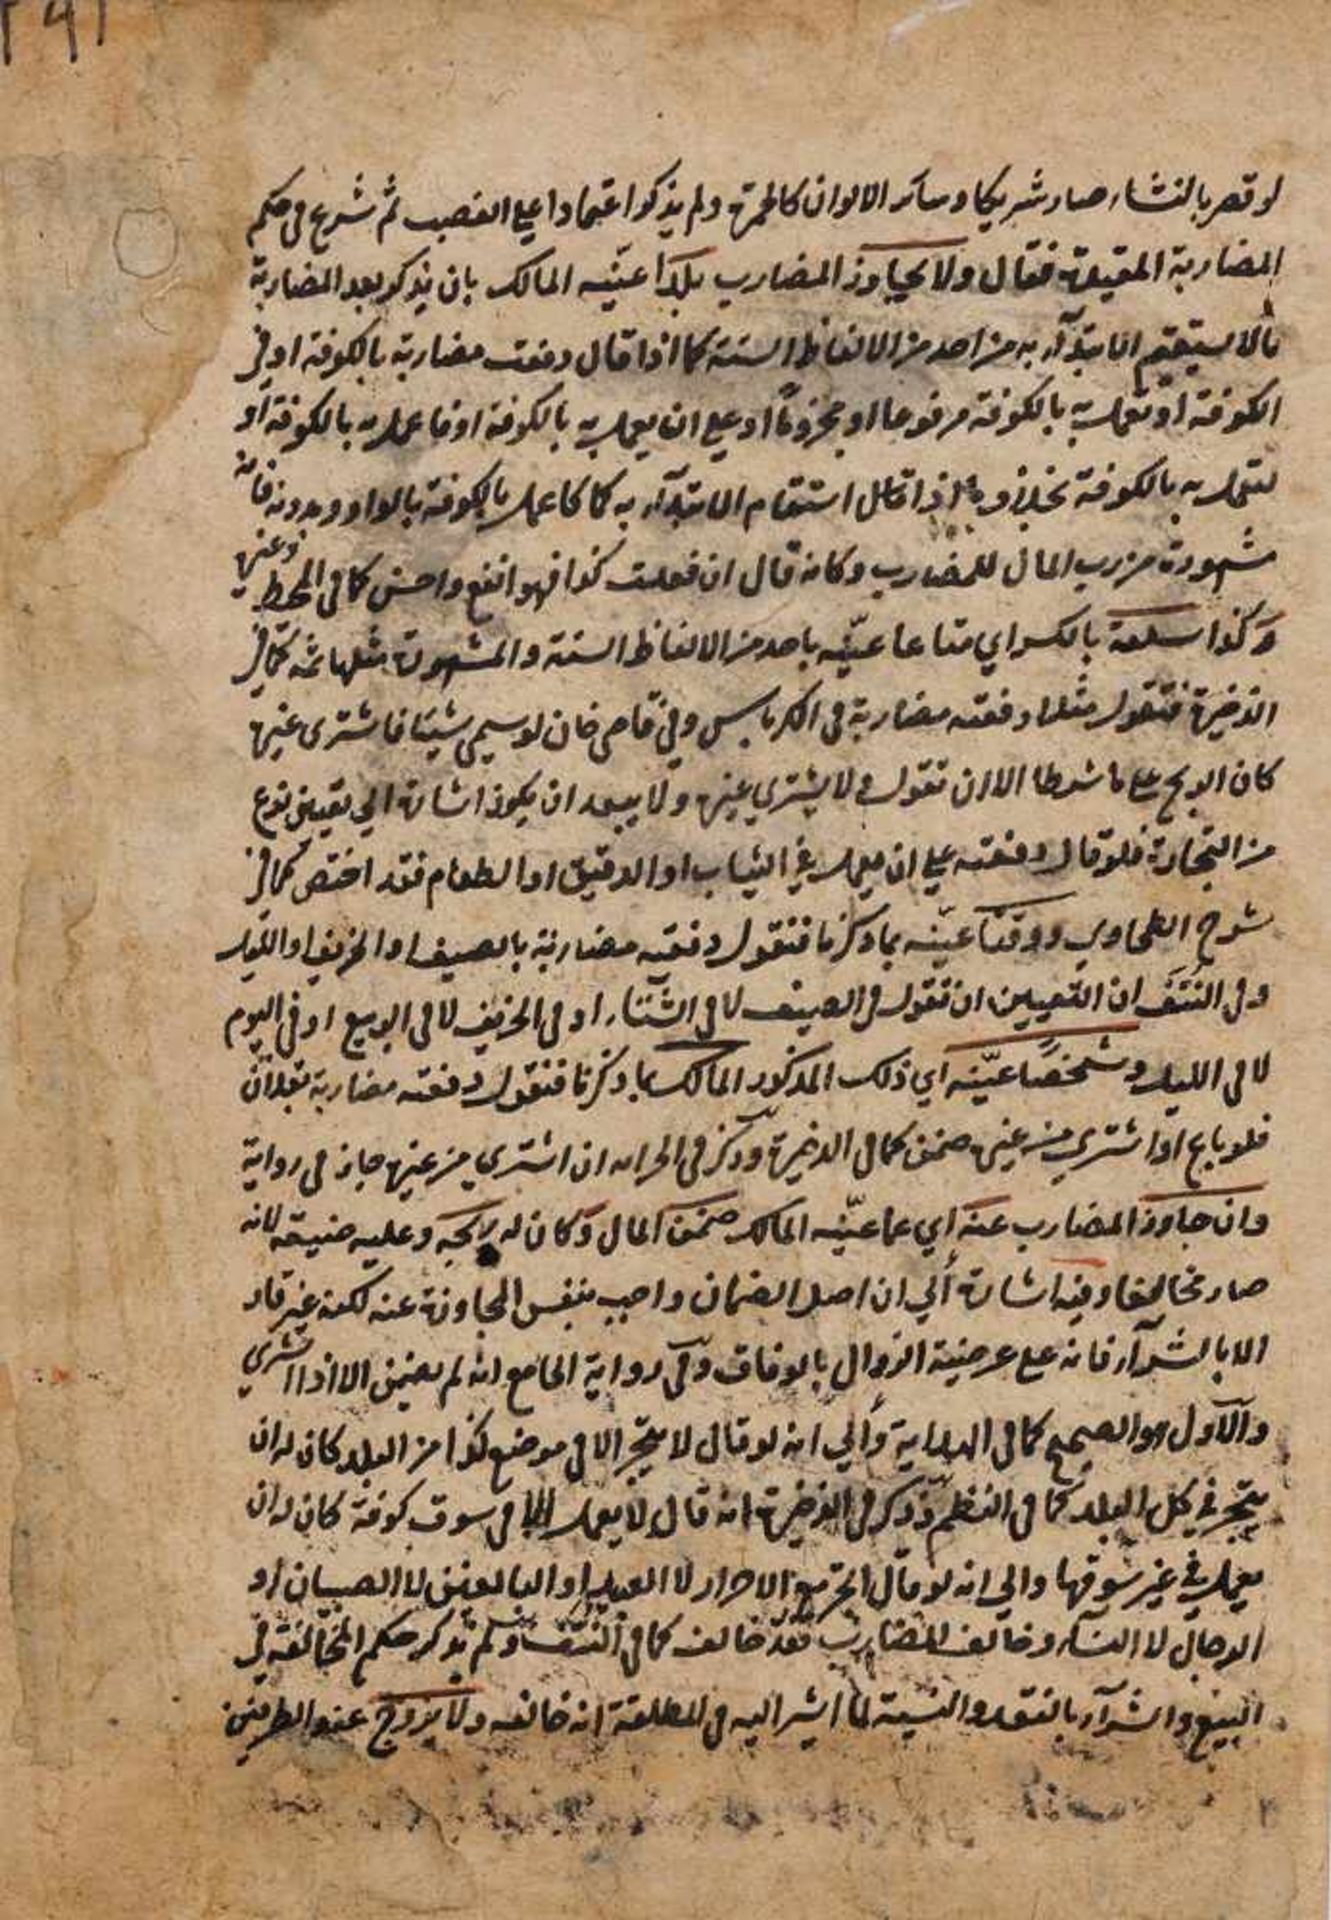 ٢٩١
لو قصر بالنشاء صار شريكا وسائر الالوان كالحمرة ولم يذكر اعتمادا على الغصب ثم شرع في حكم
المضاربة المقيدة فقال ولا يجاوز المضارب بلدا عيّنه المالك بان يذكر بعد المضاربة
ما لا يستقيم الابتدآء به من احد من الالفاظ الستة كما اذا قال دفعت مضاربة بالكوفة او في
الكوفة او تعمل به بالكوفة مرفوعا او مجزوما او على ان يعمل به بالكوفة او فاعمل به بالكوفة او
لتعمل به بالكوفة بخلاف ما اذا قال استقام الابتدآء به كما كاعمل بالكوفة بالواو وبدونه فانه
مشورة من رب المال للمضارب وكانه قال ان فعلت كذا فهو انفع واحسن كما في المحيط وغيره
وكذا سلعة بالكسر اي متاعا عيّنه باحد من الالفاظ الستة والمشهورة مثلها ثمه كما في
الذخيرة فتقول مثلا دفعته مضاربة في الكرباس وفي قاضي خان لو سمي شيئا فاشترى غيره
كان الربح على ما شرطا الا ان تقول لا يشتري غيره ولا يبعد ان يكون اشارة الى تعيين نوع
من التجارة فلو قال دفعته على ان يعمل في الثياب او الدقيق او الطعام فقد اختص كما في
شرح الطحاوي ووقتا عيّنه بما ذكرنا فنقول دفعته مضاربة بالصيف او الخريف او الليل
وفي النتف ان التعيين ان تقول في الصيف لا في الشتاء او في الخريف لا في الربيع او في اليوم
لا في الليل وشخصا عيّنه اي ذلك المذكور المالك بما ذكرنا فنقول دفعته مضاربة بفلان
فلو باع او اشترى من غيره ضمن كما في الذخيرة وذكر في الخزانه ان اشترى من غيره جاز في رواية
وان جاوز المضارب عنه اي عما عيّنه المالك ضمن المال وكان له ربحه وعليه ضيعته لانه
صار مخالفا وفيه اشارة الى ان اصل الضمان واجب بنفس المجاوزة عنه لكنه غير قار
الا بالشرآء فانه على عرضية الزوال بالوفاق وفي رواية الجامع انه لم يضمن الا اذا اشترى
والاول هو الصحيح كما في الهداية والى انه لو قال لا يتجر الا في موضع كذا من البلد كان له ان
يتجر في كل البلد كما في النظم وذكر في الذخيرة انه قال لا يعمل الا في سوق كوفة كان له ان
يعمل في غير سوقها والى انه لو قال اتجر مع الاحرار لا العبيد او البالغين لا الصبيان او
الرجال لا النساء وخالف المضارب فقد خالف كما في النتف ولم يذكر حكم المخالفة في
البيع والشرآء بالنقد والنسيئة لما اشير اليه في المطلقة انه خالفه ولا يزوج عند الطرفين